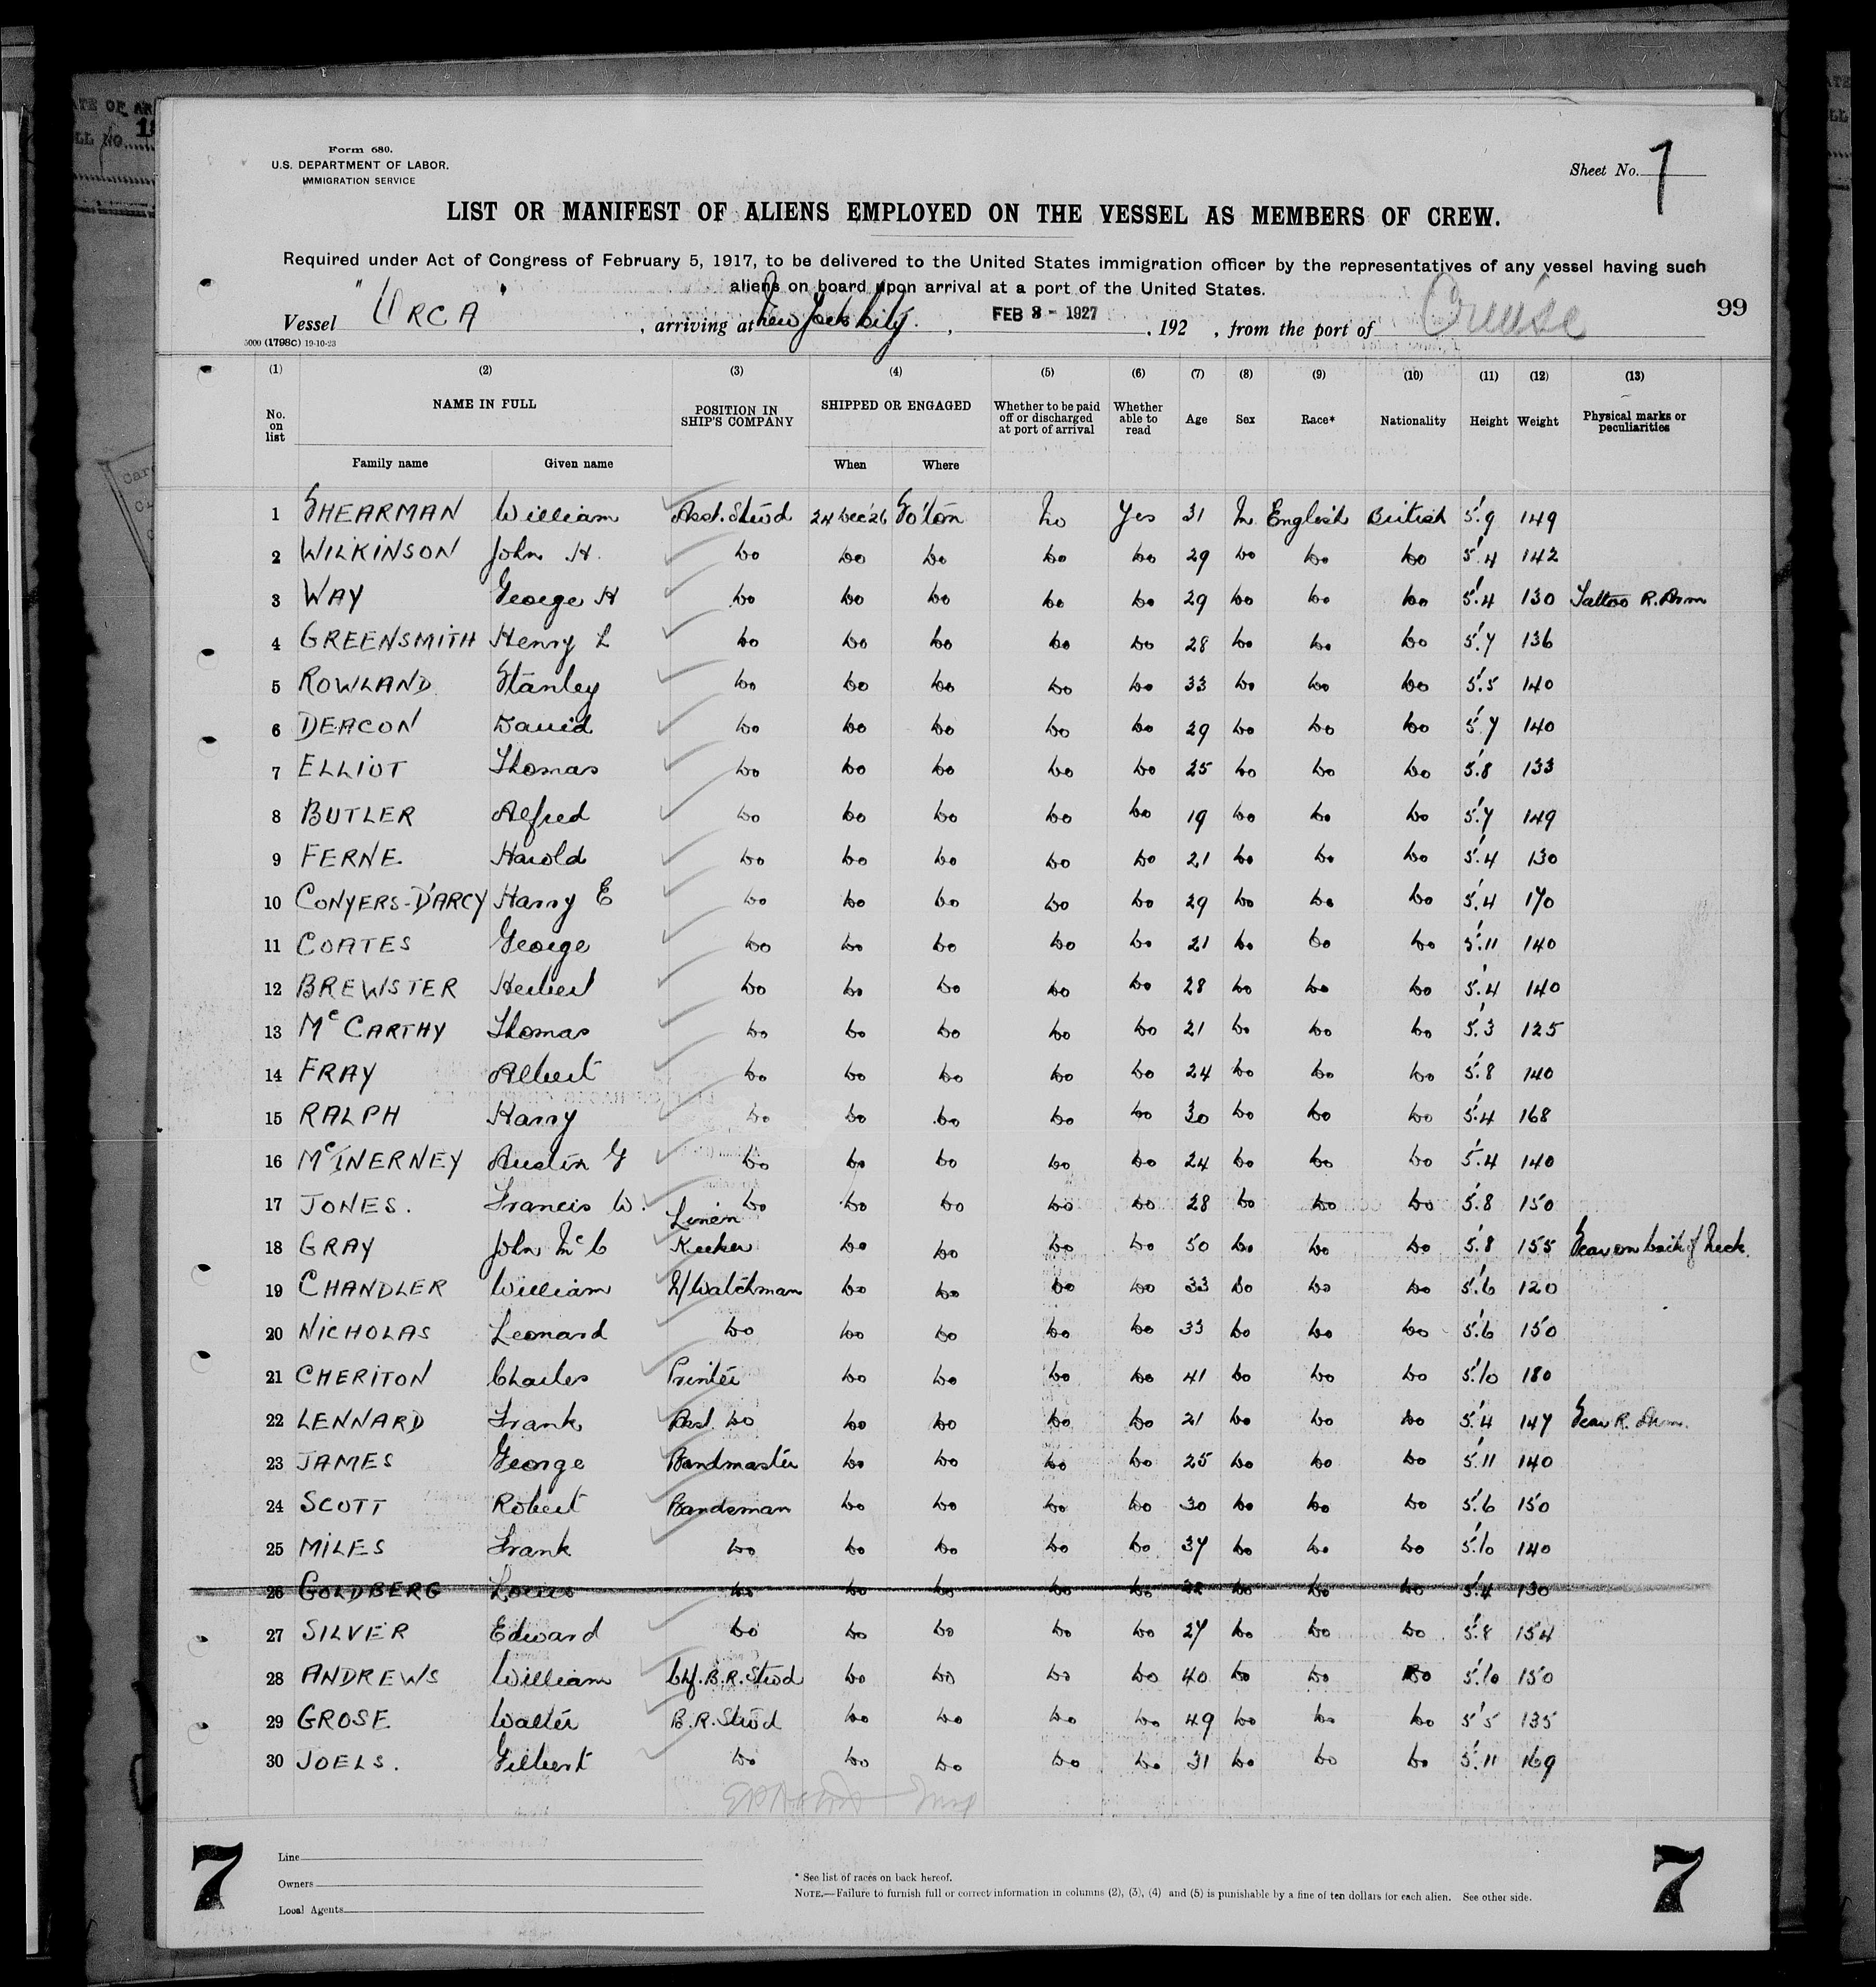 TE OF AR
LL NO.
Form 680.
U.S. DEPARTMENT OF LABOR.
IMMIGRATION SERVICE
Sheet No. 7
LIST OR MANIFEST OF ALIENS EMPLOYED ON THE VESSEL AS MEMBERS OF CREW.
Required under Act of Congress of February 5, 1917, to be delivered to the United States immigration officer by the representatives of any vessel having such
aliens on board upon arrival at a port of the United States.
Vessel "ORCA", arriving at New York City., FEB 8 - 1927. 192 , from the port of Cruise
99
5000 (1798C) 19-10-23
(1) (2) (3) (4) (5) (6) (7) (8) (9) (10) (11) (12) (13)
No. on list NAME IN FULL POSITION IN SHIP'S COMPANY SHIPPED OR ENGAGED Whether to be paid off or discharged at port of arrival Whether able to read Age Sex Race* Nationality Height Weight Physical marks or peculiarities
Family name Given name When Where
1 SHEARMAN William Asst. Stwd 24 Dec '26 So'ton No Yes 31 M. English British 5'.9 149
2 WILKINSON John H. Do Do Do Do Do 29 Do Do Do 5'.4 142
3 WAY George H Do Do Do Do Do 29 Do Do Do 5'.4 130 Tattoo R. Arm
4 GREENSMITH Henry L Do Do Do Do Do 28 Do Do Do 5'.7 136
5 ROWLAND Stanley Do Do Do Do Do 33 Do Do Do 5'.5 140
6 DEACON David Do Do Do Do Do 29 Do Do Do 5'.7 140
7 ELLIOT Thomas Do Do Do Do Do 25 Do Do Do 5'.8 133
8 BUTLER Alfred Do Do Do Do Do 19 Do Do Do 5'.7 149
9 FERNE. Harold Do Do Do Do Do 21 Do Do Do 5'.4 130
10 CONYERS-D'ARCY Harry E Do Do Do Do Do 29 Do Do Do 5'.4 170
11 COATES George Do Do Do Do Do 21 Do Do Do 5'.11 140
12 BREWSTER Herbert Do Do Do Do Do 28 Do Do Do 5'.4 140
13 McCARTHY Thomas Do Do Do Do Do 21 Do Do Do 5'.3 125
14 FRAY Albert Do Do Do Do Do 24 Do Do Do 5'.8 140
15 RALPH Harry Do Do Do Do Do 30 Do Do Do 5'.4 168
16 McINERNEY Austin G Do Do Do Do Do 24 Do Do Do 5'.4 140
17 JONES. Francis W. Do Do Do Do Do 28 Do Do Do 5'.8 150
18 GRAY John McC Linen Keeper Do Do Do Do 50 Do Do Do 5'.8 155 Scar on back of Neck.
19 CHANDLER William N/Watchman Do Do Do Do 33 Do Do Do 5'.6 120
20 NICHOLAS Leonard Do Do Do Do Do 33 Do Do Do 5'.6 150
21 CHERITON Charles Printer Do Do Do Do 41 Do Do Do 5'.10 180
22 LENNARD Frank Asst. Do Do Do Do Do 21 Do Do Do 5'.4 147 Scar R. Arm.
23 JAMES George Bandmaster Do Do Do Do 25 Do Do Do 5'.11 140
24 SCOTT Robert Bandsman Do Do Do Do 30 Do Do Do 5'.6 150
25 MILES Frank Do Do Do Do Do 37 Do Do Do 5'.10 140
26 GOLDBERG Louis Do Do Do Do Do Do Do Do 5'.4 130
27 SILVER Edward Do Do Do Do Do 27 Do Do Do 5'.8 154
28 ANDREWS William Chf. B.R. Stwd Do Do Do Do 40 Do Do Do 5'.10 150
29 GROSE Walter B.R. Stwd Do Do Do Do 49 Do Do Do 5'5 135
30 JOELS. Gilbert Do Do Do Do Do 31 Do Do Do 5'.11 169
7
Line
Owners
Local Agents
* See list of races on back hereof.
NOTE.—Failure to furnish full or correct information in columns (2), (3), (4) and (5) is punishable by a fine of ten dollars for each alien. See other side.
7